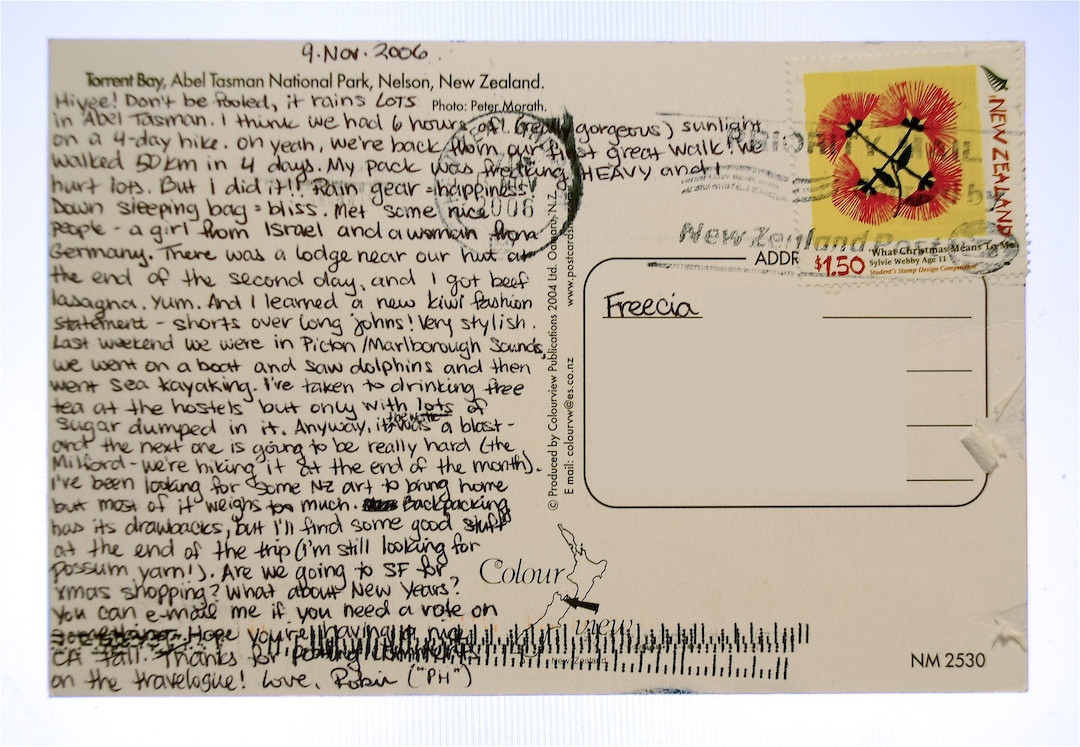 9. Nov. 2006.
Torrent Bay, Abel Tasman National Park, Nelson, New Zealand.
Photo: Peter Morath.
Hiyee! Don't be fooled, it rains LOTS
in Abel Tasman. I think we had 6 hours of (really gorgeous) sunlight
on a 4-day hike. Oh yeah, we're back from our first great walk! We
walked 50 km in 4 days. My pack was freaking HEAVY and I
hurt lots. But I did it!! Rain gear = happiness.
Down sleeping bag = bliss. Met some nice
people - a girl from Israel and a woman from
Germany. There was a lodge near our hut at
the end of the second day, and I got beef
lasagna. Yum. And I learned a new kiwi fashion
statement - shorts over long johns! Very stylish.
Last weekend we were in Picton/Marlborough Sounds,
we went on a boat and saw dolphins and then
went sea kayaking. I've taken to drinking free
tea at the hostels but only with lots of
sugar dumped in it. Anyway, the hike was a blast -
and the next one is going to be really hard (the
Milford - we're hiking it at the end of the month).
I've been looking for some NZ art to bring home
but most of it weighs too much. Backpacking
has its drawbacks, but I'll find some good stuff
at the end of the trip (I'm still looking for
possum yarn!). Are we going to SF for
xmas shopping? What about New Years?
You can e-mail me if you need a vote on
something. Hope you're having a nice
CA fall. Thanks for posting comments
on the travelogue! Love, Robin ("PH")
© Produced by Colourview Publications 2004 Ltd. Oamaru, N.Z.
www.postcards
E mail: colourvw@es.co.nz
Colour
view
New Zealand
2006
PRIORITY MAIL
by
New Zealand Post
NEW ZEALAND
What Christmas Means To Me
Sylvie Webby Age 11
Student's Stamp Design Competition
$1.50
ADDR
Freecia
NM 2530